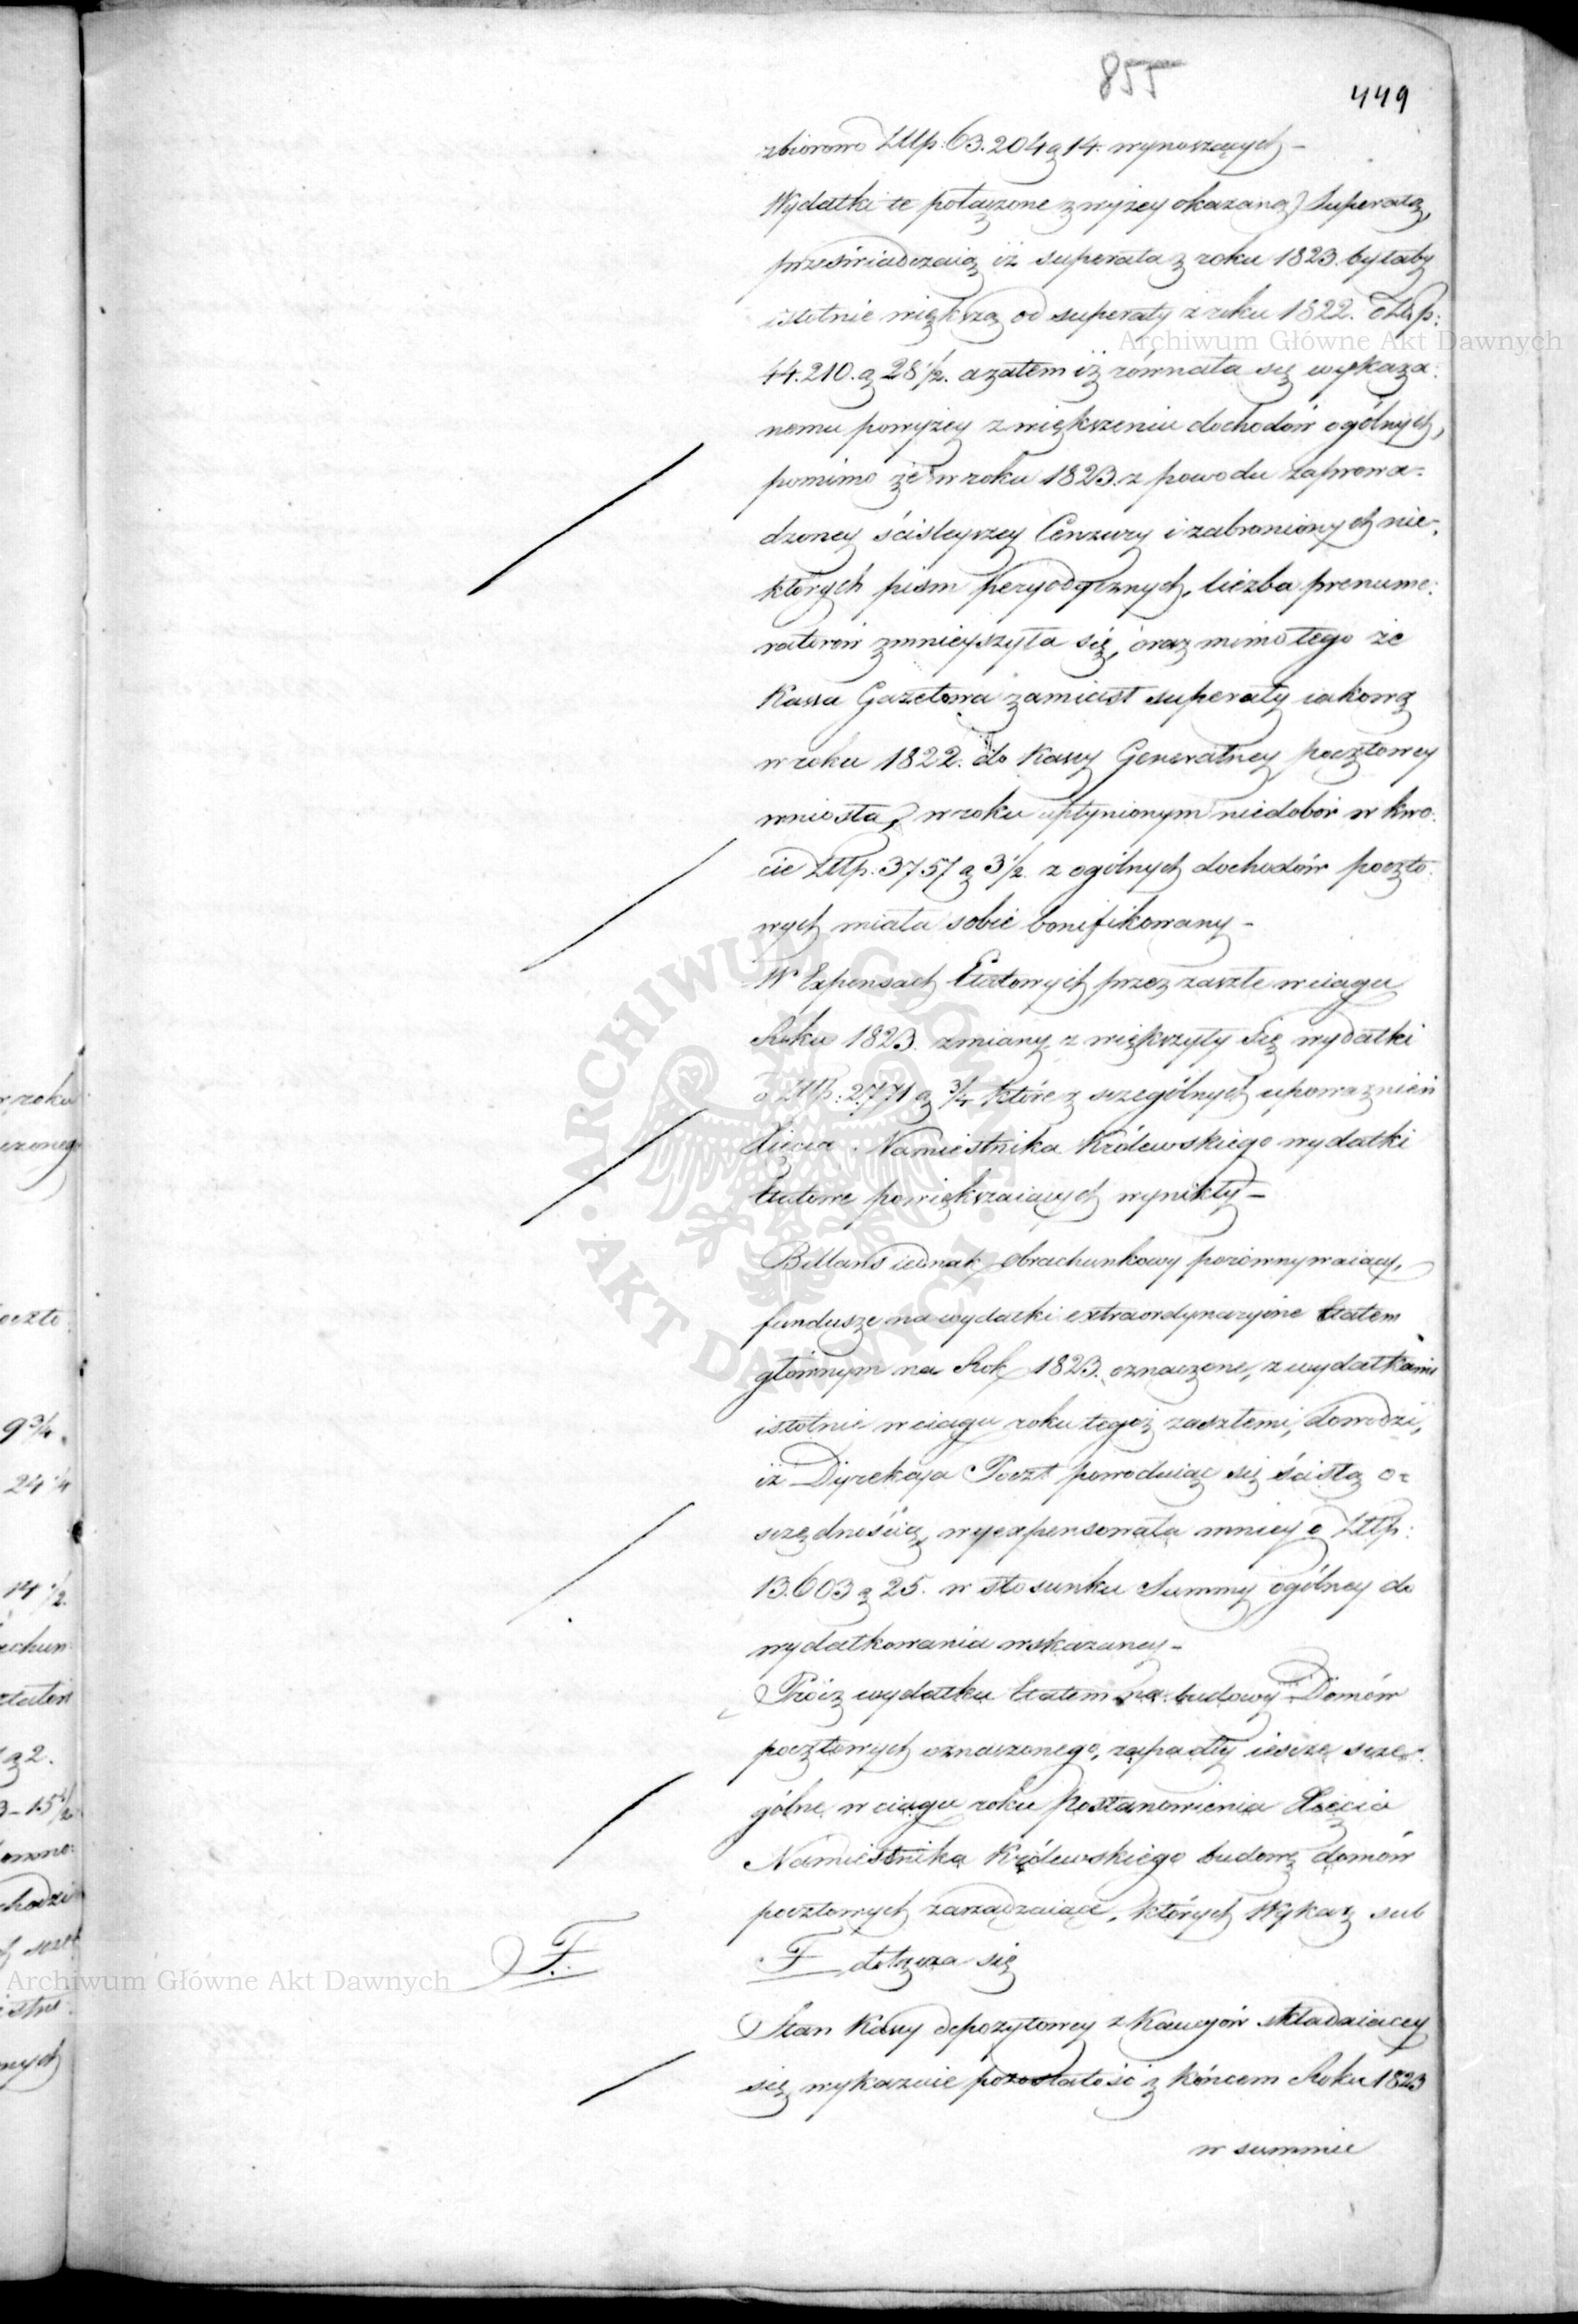 855
449
zbiorowo Złłp: 63.204 g 14. wynoszących –
Wydatki te połączone z wyżey okazaną Superatą,
przeświadczaią iż superata z roku 1823. byłaby
istotnie większą od superaty z roku 1822. o Złp:
44.210. g 28 1/2. a zatem iż równała się wykaza:
nemu powyżey zwiększeniu dochodów ogólnych,
pomimo że w roku 1823. z powodu zaprowa:
dzoney ściśleyszey Cenzury i zabronionych nie:
których pism peryodycznych, liczba prenume:
ratorów zmnieyszyła się, oraz mimo tego że
Kassa Gazetowa zamiast superaty iakową
w roku 1822. do Kassy Generalney pocztowey
wniosła, w roku upłynionym niedobór w kwo:
cie Złłp: 3757 g 3 1/2. z ogólnych dochodów poczto:
wych miała sobie bonifikowany –
W Expensach Etatowych przez zaszłe w ciągu
Roku 1823. zmiany zwiększyły się wydatki
o Złłp: 2,771 g 3/4 które z szczególnych upoważnień
Xięcia Namiestnika Królewskiego wydatki
Etatowe powiększaiących wynikły –
Billans iednak obrachunkowy porównywaiący,
fundusze na wydatki extraordynaryine Etatem
głównym na Rok 1823. oznaczone, z wydatkami
istotnie w ciągu roku tegoż zaszłemi, dowodzi,
iż Dyrekcya Poczt powoduiąc się ścisłą o:
szczędnością, wyexpensowała mniey o Złłp:
13.603 g 25. w stosunku Summy ogólney do
wydatkowania wskazaney –
Prócz wydatku Etatem na budowy Domów
pocztowych oznaczonego, zapadły ieszcze szcze:
gólne w ciągu roku Postanowienia Xięcia
Namiestnika Królewskiego budowę domów
pocztowych zarządzaiące, których Wykaz sub
F.
F dołącza się
Stan Kassy depozytowey z Kaucyów składaiącey
się wykazuie pozostałość z końcem Roku 1823
w summie
w roku
czonego
poczto
9 3/4.
24 1/4
14 1/2.
g 2.
3 – 15 1/2
Archiwum Główne Akt Dawnych
Archiwum Główne Akt Dawnych
ARCHIWUM GŁÓWNE
AKT DAWNYCH